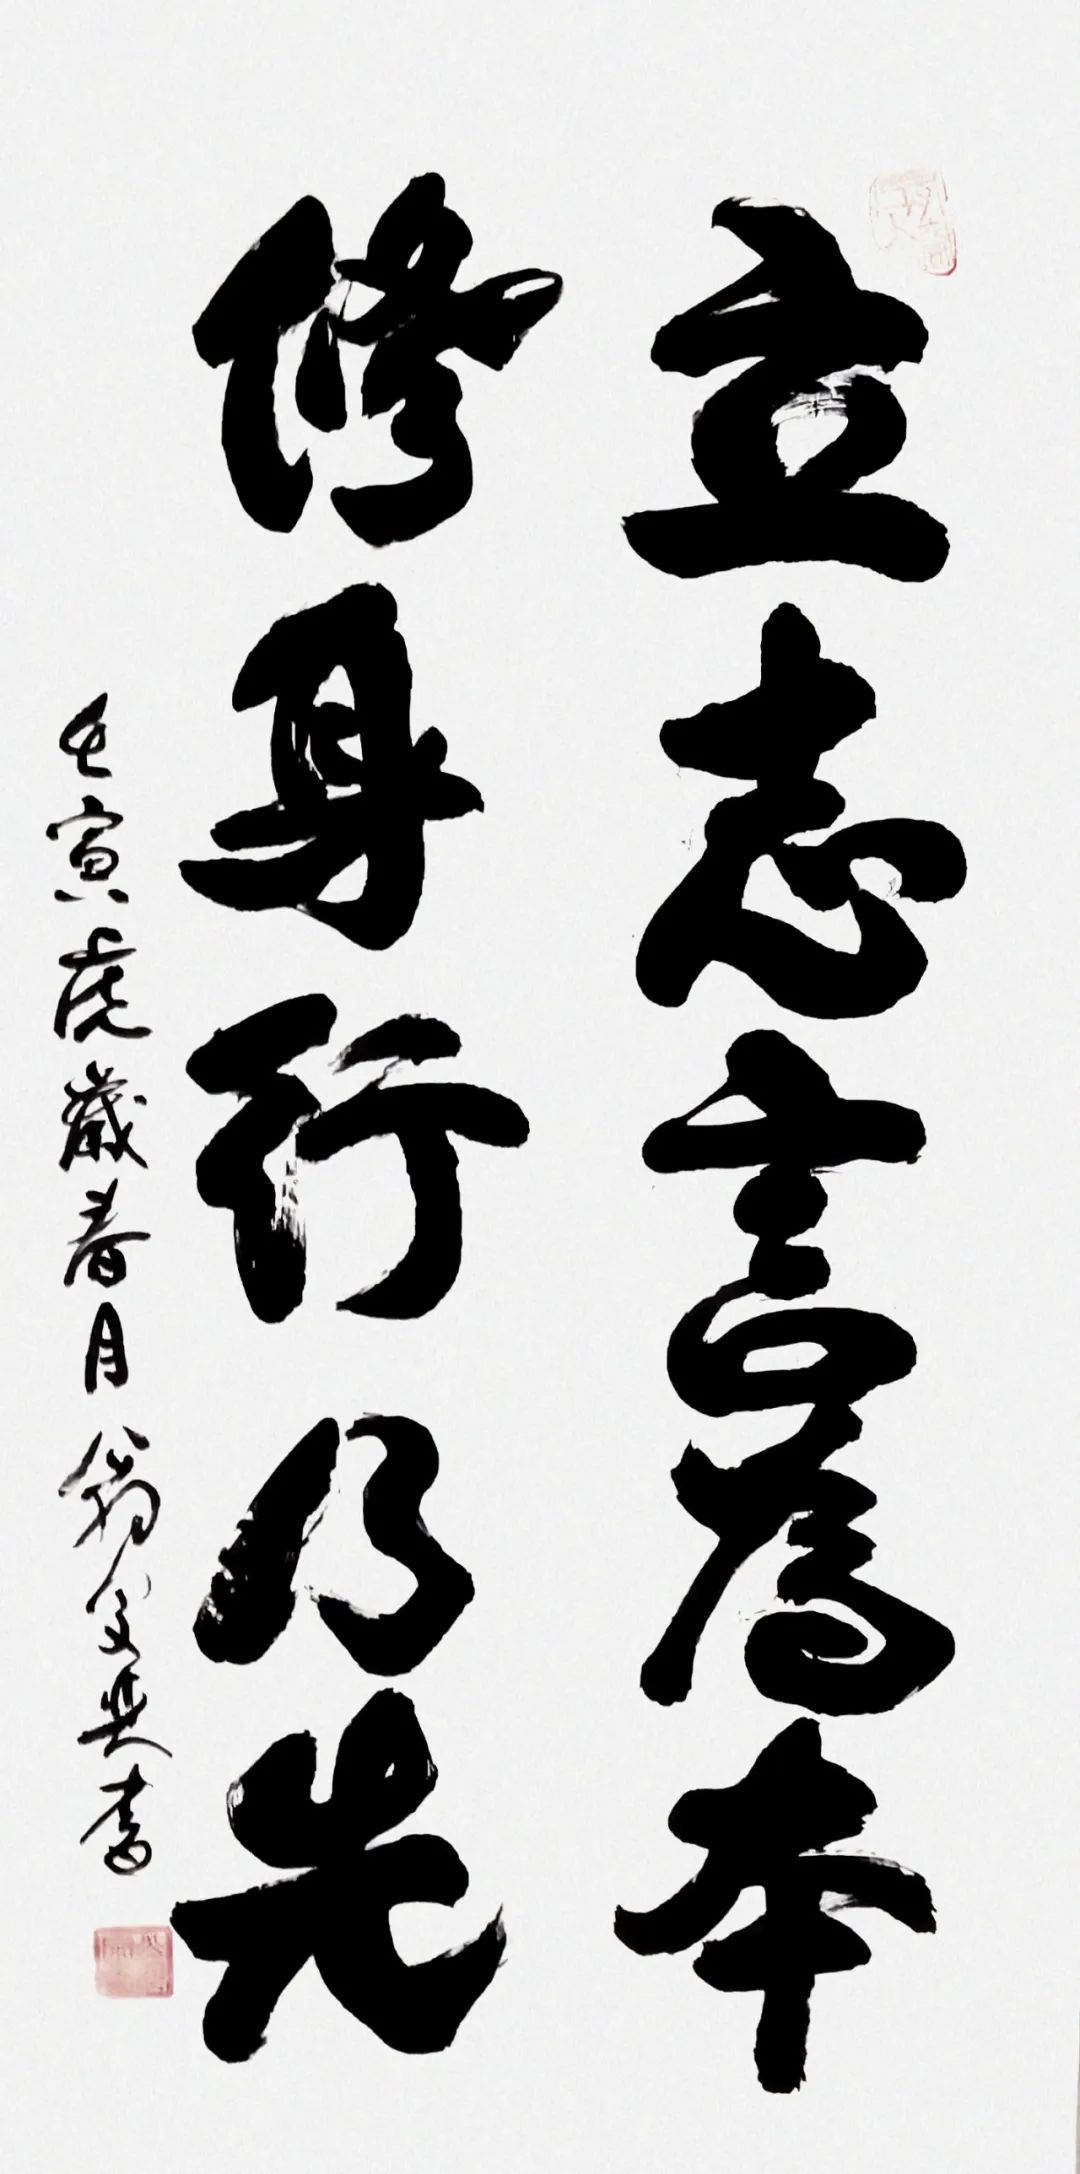 立志言為本
修身行乃先
壬寅虎歲春月翁文奕書